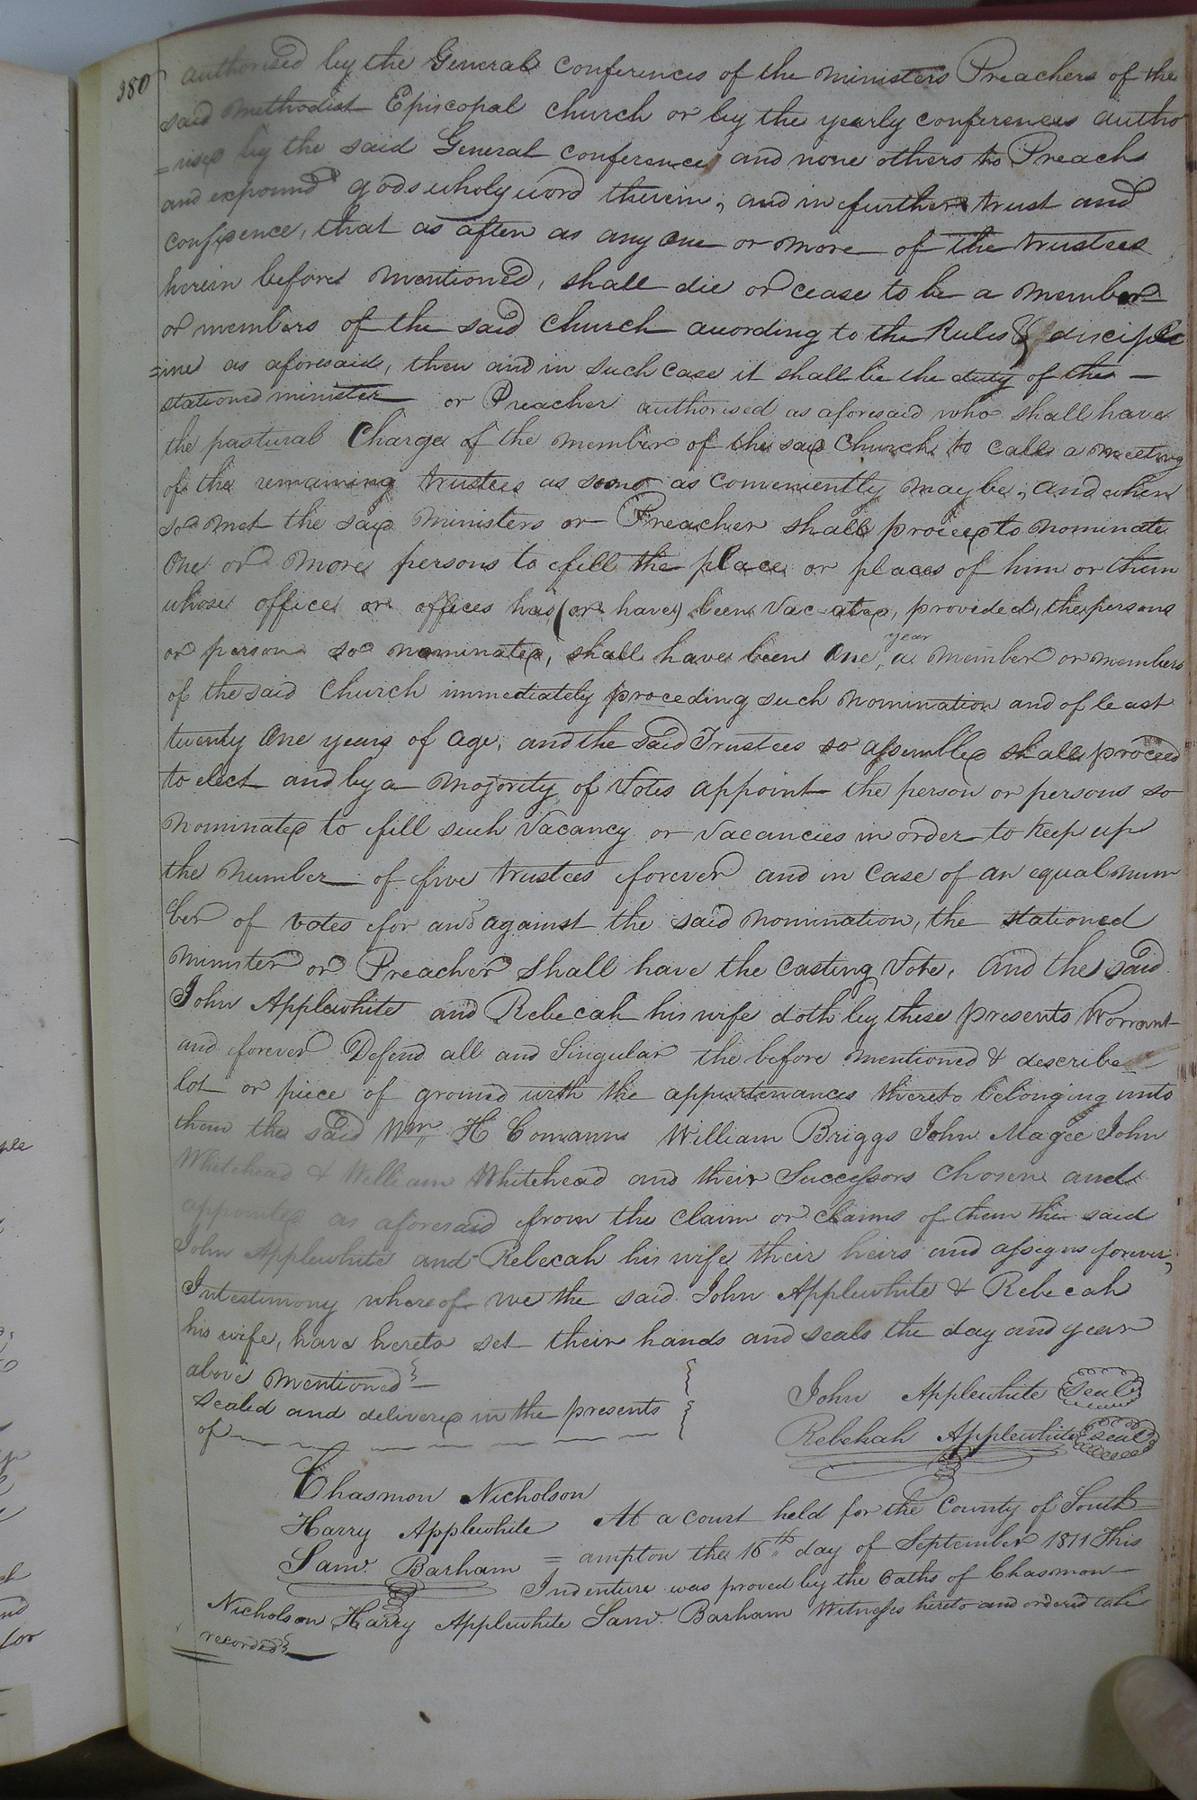 280
authorised by the General conferences of the ministers Preachers of the
said methodist Episcopal church or by the yearly conferences autho
=rised by the said General conferences and none others to Preach
and expound gods wholy word therein, and in further trust and
confidence, that as often as any one or more of the trustees
herein before mentioned, shall die or cease to be a member
or members of the said church according to the Rules & discipl
=ine as aforesaid, then and in such case it shall be the duty of the —
stationed minister or Preacher authorised as aforesaid who shall have
the pastural Charge of the member of the said Church to call a meeting
of the remaining trustees as soon as conveniently may be, and when
so met the said Ministers or Preacher shall proceed to nominate
one or more persons to fill the place or places of him or them
whose office or offices has (or have) been vacated, provided, the persons
or person so nominated, shall have been one year a member or members
of the said Church immediately proceding such nomination and of least
twenty one years of age, and the said Trustees so assembled shall proceed
to elect and by a majority of Votes appoint the person or persons so
nominated to fill such vacancy or vacancies in order to keep up
the number of five trustees forever and in case of an equal num
ber of votes for and against the said nomination, the stationed
minister or Preacher shall have the casting Vote, and the said
John Applewhite and Rebecah his wife doth by these presents Worrant
and forever Defend all and Singular the before mentioned & describe
lot or piece of ground with the appurtenances thereto belonging unto
them the said Wm H Comann William Briggs John Magee John
Whitehead & William Whitehead and their Successors chosen and
appointed as aforesaid from the claim or claims of them the said
John Applewhite and Rebecah his wife their heirs and assigns forever;
In testimony whereof we the said John Applewhite & Rebecah
his wife, have hereto set their hands and seals the day and year
above mentioned —
Sealed and delivered in the presents
of
John Applewhite seal
Rebekah Applewhite seal
Chasmon Nicholson
Harry Applewhite
Saml. Barham
At a court held for the County of South=
=ampton the 16th day of September 1811 This
Indenture was proved by the Oaths of Chasmon
Nicholson Harry Applewhite Saml. Barham Witnesses hereto and ordered to be
recorded